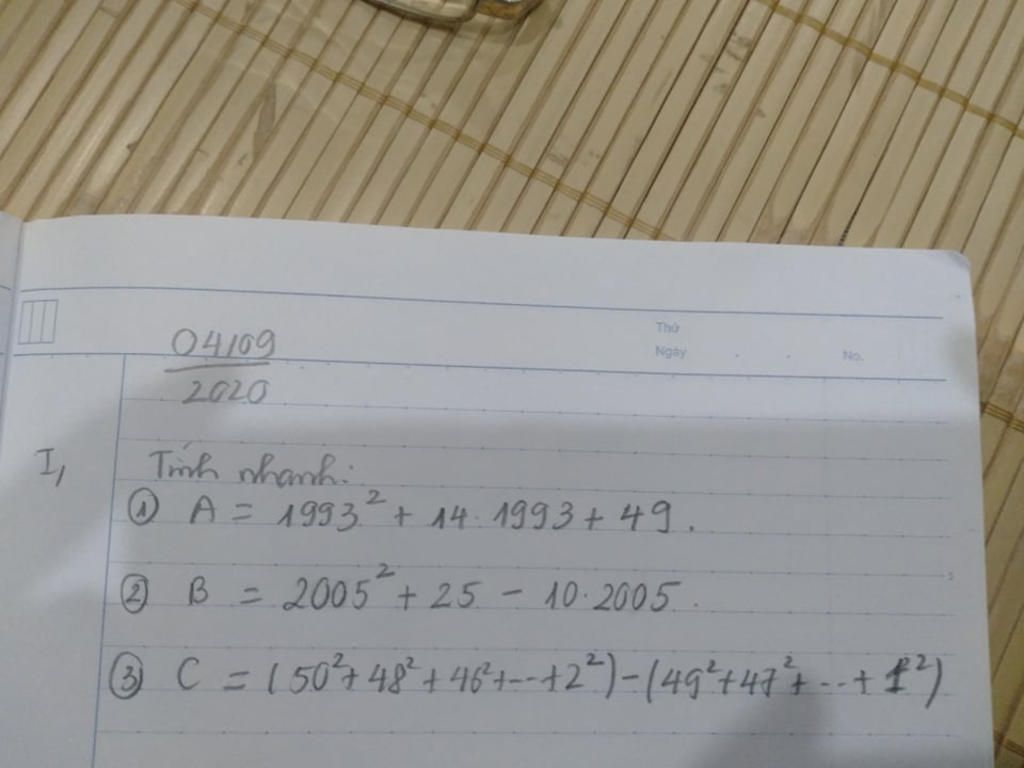 Thứ
Ngày
No.
04/09
2020
I, Tính nhanh:
① A = 1993² + 14.1993 + 49.
② B = 2005² + 25 - 10.2005.
③ C = (50² + 48² + 46² + ... + 2²) - (49² + 47² + ... + 1²)